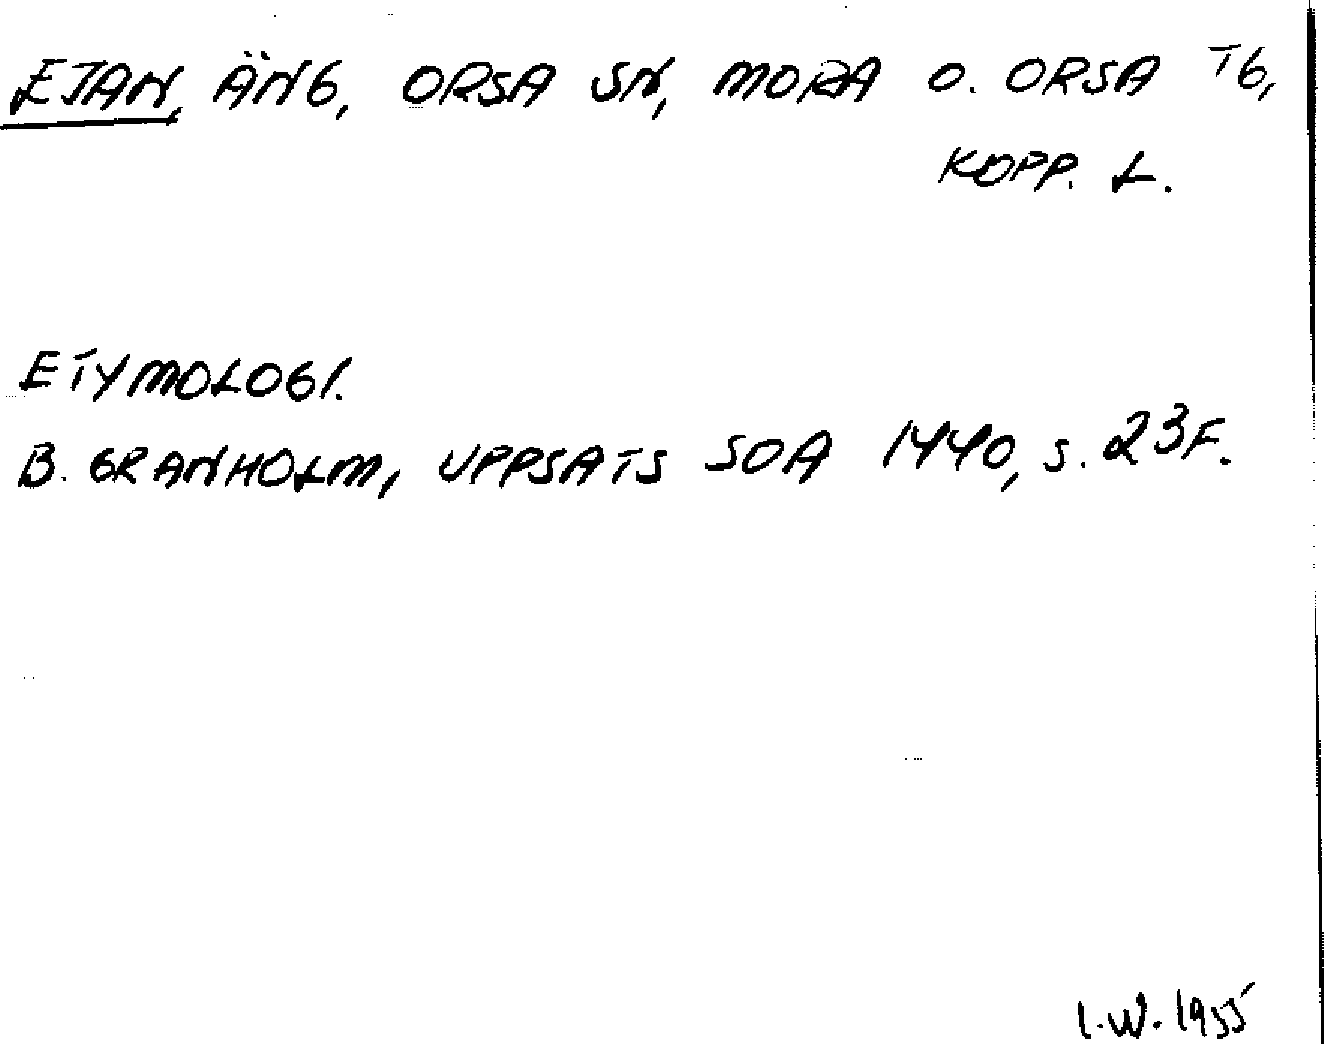 EJAN, ÄNG, ORSA SN, MORA O. ORSA TG,
KOPP. L.
ETYMOLOGI.
B. GRANHOLM, UPPSATS SOA 1440, s. 23F.
I.W. 1955